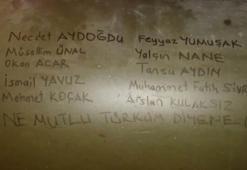 Necdet AYDOĞDU Feyyaz YUMUŞAK
Müsellim ÜNAL Yalçın NANE
Okan ACAR Tansu AYDIN
İsmail YAVUZ Muhammet Fatih
Mehmet KOÇAK Arslan KULAKSIZ
NE MUTLU TÜRKÜM DİYENE